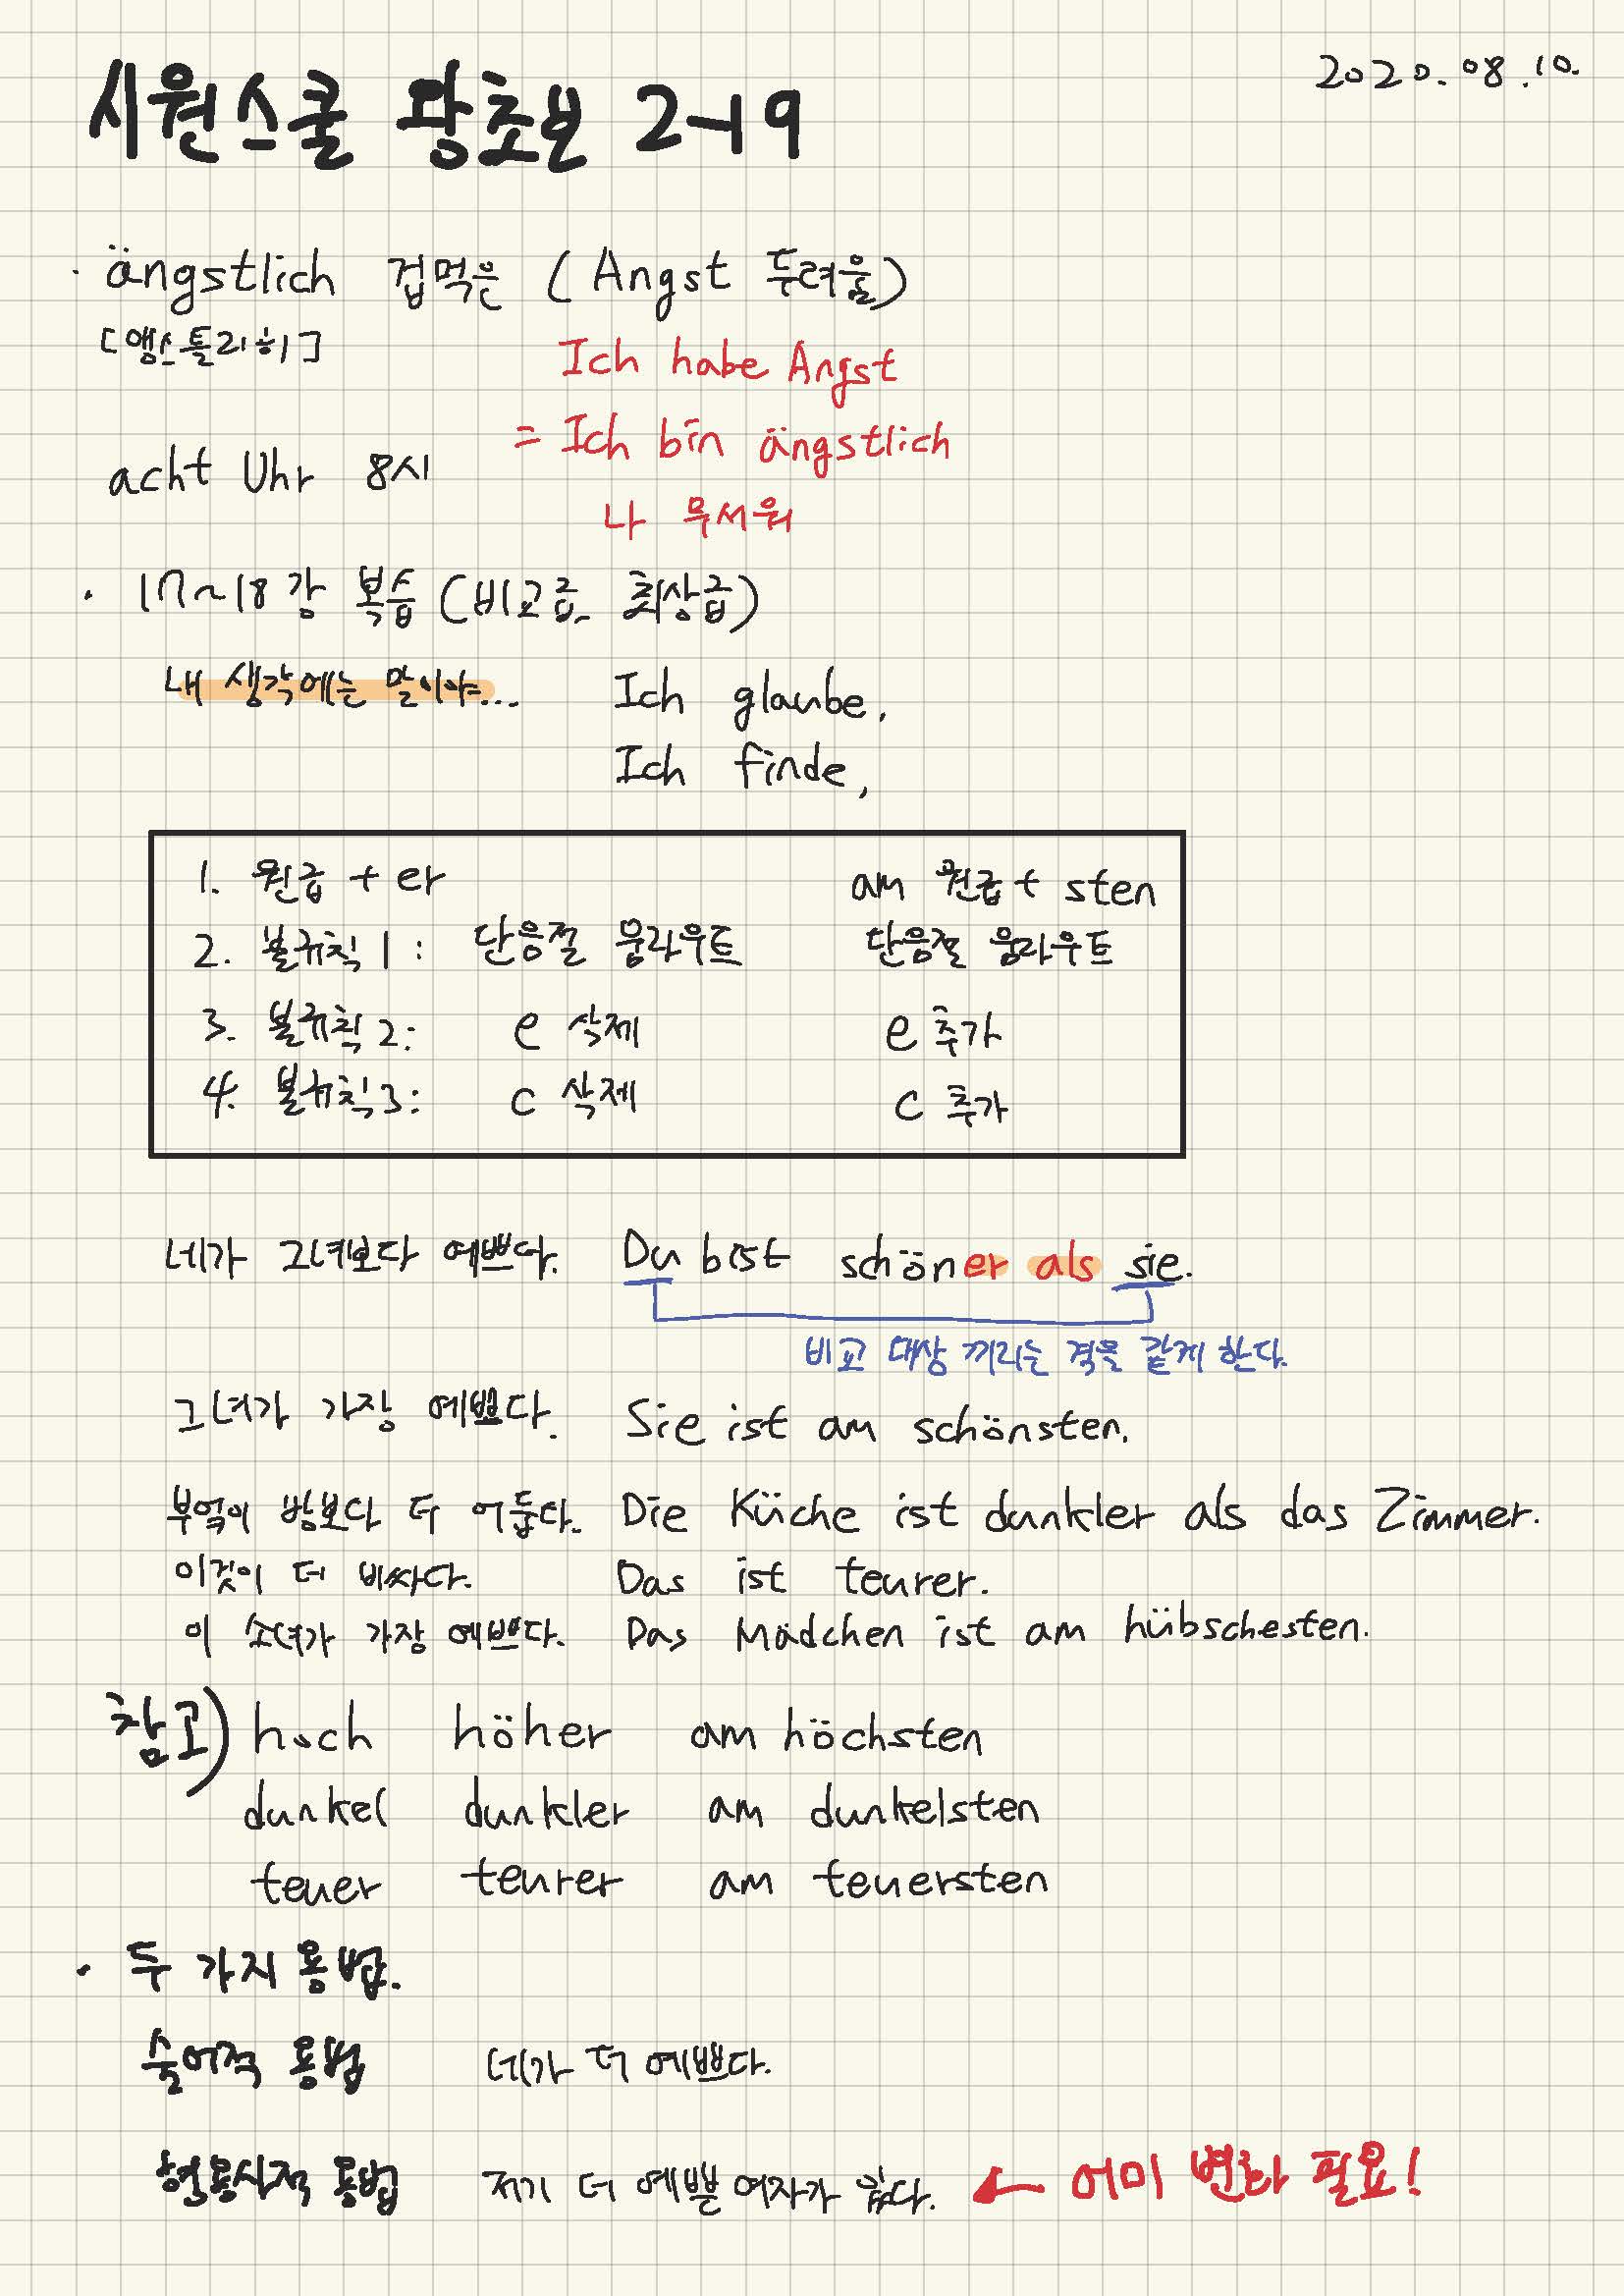 시원스쿨 왕초보 2-19
2020.08.10.
· ängstlich 겁먹은 (Angst 두려움)
[앵스틀리히]
Ich habe Angst
= Ich bin ängstlich
나 무서워
acht Uhr 8시
· 17~18강 복습 (비교급, 최상급)
내 생각에는 말이야... Ich glaube,
Ich finde,
1. 원급 + er am 원급 + sten
2. 불규칙1: 단음절 움라우트 단음절 움라우트
3. 불규칙2: e 삭제 e 추가
4. 불규칙3: c 삭제 c 추가
네가 그녀보다 예쁘다. Du bist schöner als sie.
비교 대상 끼리는 격을 같게 한다.
그녀가 가장 예쁘다. Sie ist am schönsten.
부엌이 방보다 더 어둡다. Die Küche ist dunkler als das Zimmer.
이것이 더 비싸다. Das ist teurer.
이 소녀가 가장 예쁘다. Das Mädchen ist am hübschesten.
참고) hoch höher am höchsten
dunkel dunkler am dunkelsten
teuer teurer am teuersten
· 두 가지 용법.
술어적 용법 네가 더 예쁘다.
형용사적 용법 저기 더 예쁜 여자가 있다. ← 어미 변화 필요!